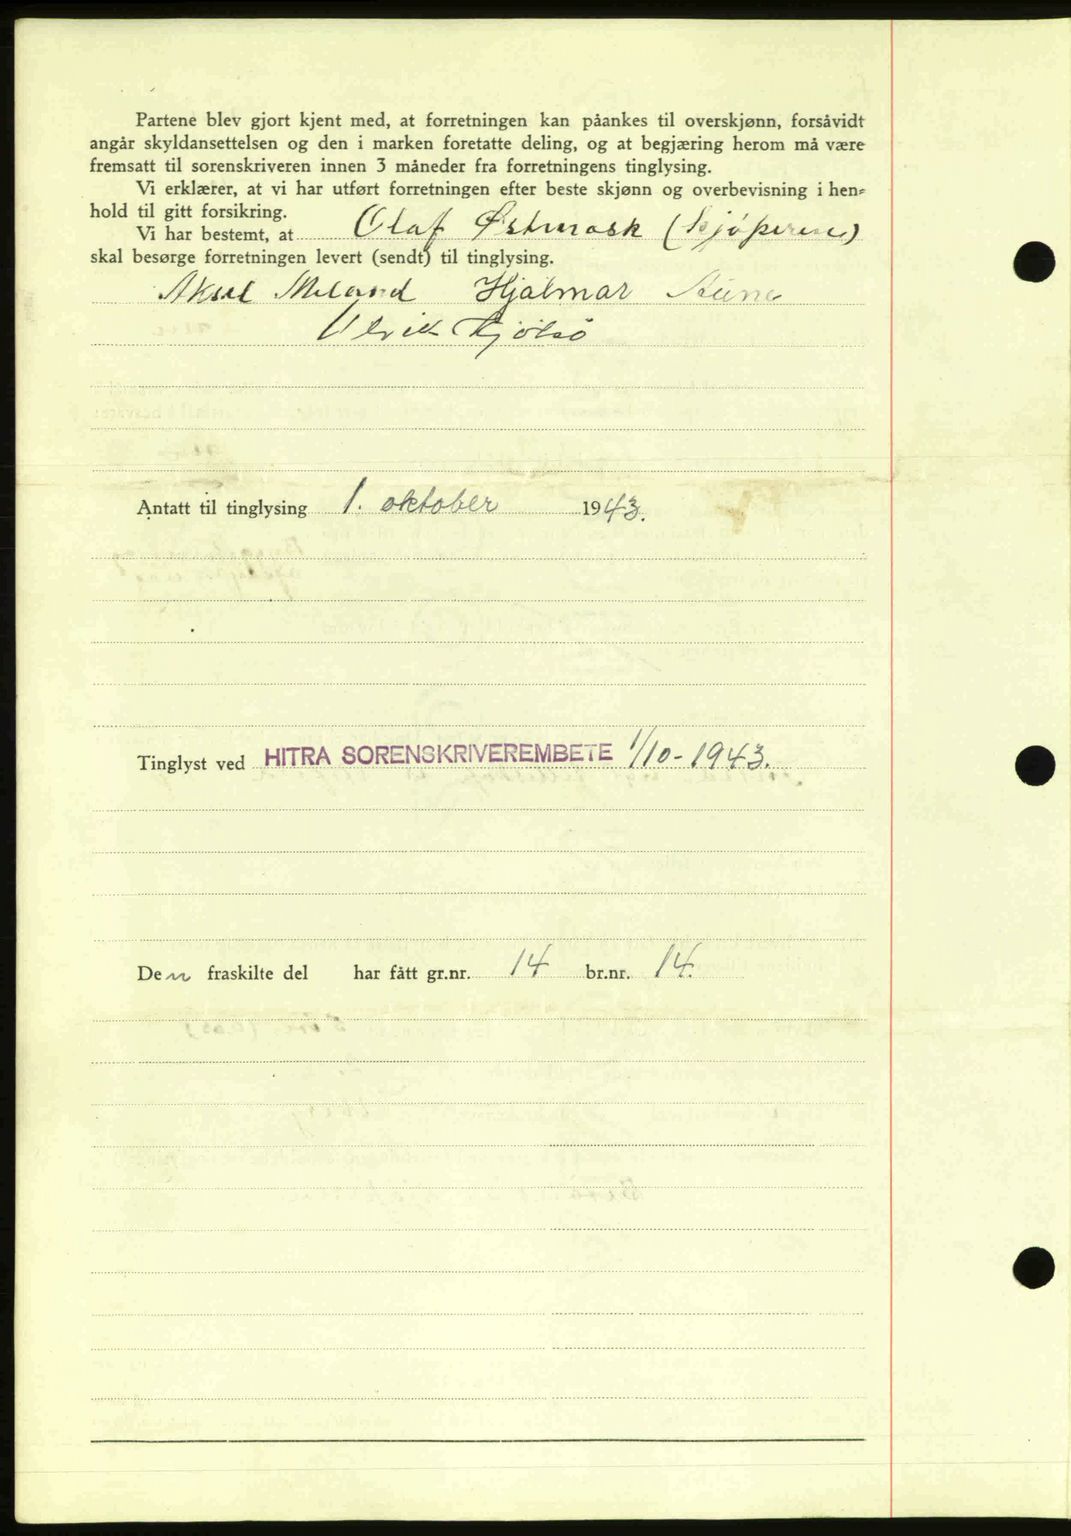 Partene blev gjort kjent med, at forretningen kan påankes til overskjønn, forsåvidt
angår skyldansettelsen og den i marken foretatte deling, og at begjæring herom må være
fremsatt til sorenskriveren innen 3 måneder fra forretningens tinglysing.
Vi erklærer, at vi har utført forretningen efter beste skjønn og overbevisning i hen=
hold til gitt forsikring.
Vi har bestemt, at Olaf Østmark (kjøperen)
skal besørge forretningen levert (sendt) til tinglysing.
Aksel Meland Hjalmar Aune
Ulrik Kjølsø
Antatt til tinglysing 1. oktober 1943.
Tinglyst ved HITRA SORENSKRIVEREMBETE 1/10-1943.
Den fraskilte del har fått gr.nr. 14 br.nr. 14.